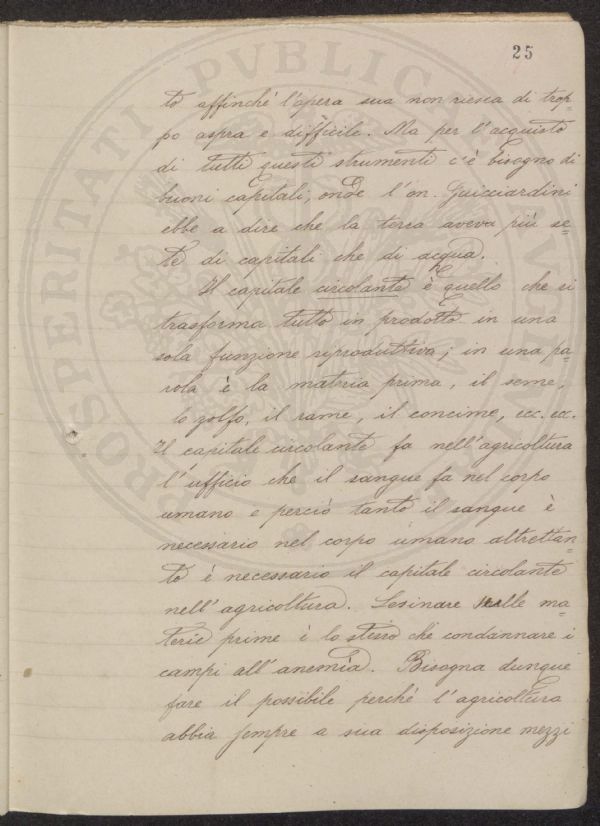 25
to affinchè l'opera sua non riesca di trop=
po aspra e difficile. Ma per l'acquisto
di tutti questi strumenti c'è bisogno di
buoni capitali, onde l'on. Guicciardini
ebbe a dire che la terra aveva più se=
te di capitali che di acqua.
Il capitale circolante è quello che si
trasforma tutto in prodotto in una
sola funzione riproduttiva; in una pa=
rola è la materia prima, il seme,
lo zolfo, il rame, il concime, ecc. ecc.
Il capitale circolante fa nell'agricoltura
l'ufficio che il sangue fa nel corpo
umano e perciò tanto il sangue è
necessario nel corpo umano altrettan=
to è necessario il capitale circolante
nell'agricoltura. Lesinare nelle ma=
terie prime è lo stesso che condannare i
campi all'anemia. Bisogna dunque
fare il possibile perchè l'agricoltura
abbia sempre a sua disposizione mezzi
PROSPERITATI PUBLICAE